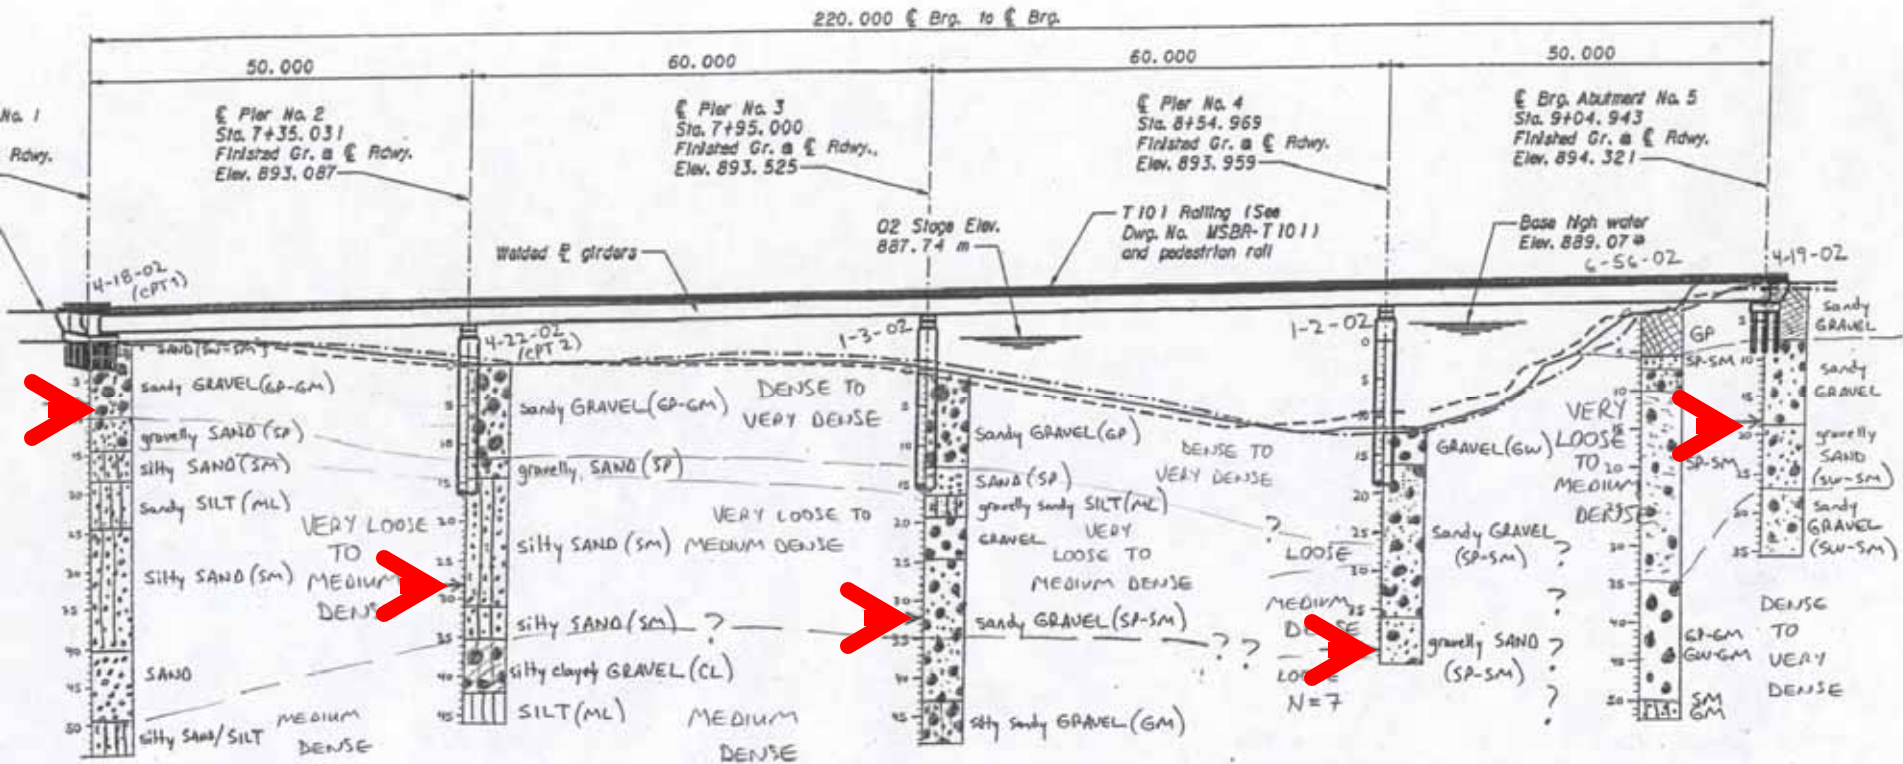 220.000 ℄ Brg. to ℄ Brg.
50.000
60.000
60.000
50.000
No. 1
Rdwy.
℄ Pier No. 2
Sta. 7+35.031
Finished Gr. @ ℄ Rdwy.
Elev. 893.087
℄ Pier No. 3
Sta. 7+95.000
Finished Gr. @ ℄ Rdwy.
Elev. 893.525
℄ Pier No. 4
Sta. 8+54.969
Finished Gr. @ ℄ Rdwy.
Elev. 893.959
℄ Brg. Abutment No. 5
Sta. 9+04.943
Finished Gr. @ ℄ Rdwy.
Elev. 894.321
Welded ℄ girders
Q2 Stage Elev.
887.74 m
T101 Railing (See
Dwg. No. MSBR-T101)
and pedestrian rail
Base high water
Elev. 889.07
4-18-02
(CPT 1)
4-22-02
(CPT 2)
1-3-02
1-2-02
6-56-02
4-19-02
SAND (SW-SM)
sandy GRAVEL (GP-GM)
gravelly SAND (SP)
silty SAND (SM)
sandy SILT (ML)
silty SAND (SM)
SAND
silty SAND/SILT
VERY LOOSE
TO
MEDIUM
DENSE
MEDIUM
DENSE
sandy GRAVEL (GP-GM)
gravelly SAND (SP)
silty SAND (SM)
silty SAND (SM) ?
silty clayey GRAVEL (CL)
SILT (ML)
DENSE TO
VERY DENSE
VERY LOOSE TO
MEDIUM DENSE
MEDIUM
DENSE
sandy GRAVEL (GP)
SAND (SP)
gravelly sandy SILT (ML)
GRAVEL
sandy GRAVEL (SP-SM)
silty sandy GRAVEL (GM)
VERY
LOOSE TO
MEDIUM DENSE
DENSE TO
VERY DENSE
?
? ?
LOOSE
MEDIUM
DENSE
LOOSE
N=7
GRAVEL (GW)
sandy GRAVEL
(SP-SM)
gravelly SAND
(SP-SM)
?
?
?
?
VERY
LOOSE
TO
MEDIUM
DENSE
GP
SP-SM
SP-SM
GP-GM
GW-GM
SM
GM
sandy
GRAVEL
sandy
GRAVEL
gravelly
SAND
(SW-SM)
sandy
GRAVEL
(SW-SM)
DENSE
TO
VERY
DENSE